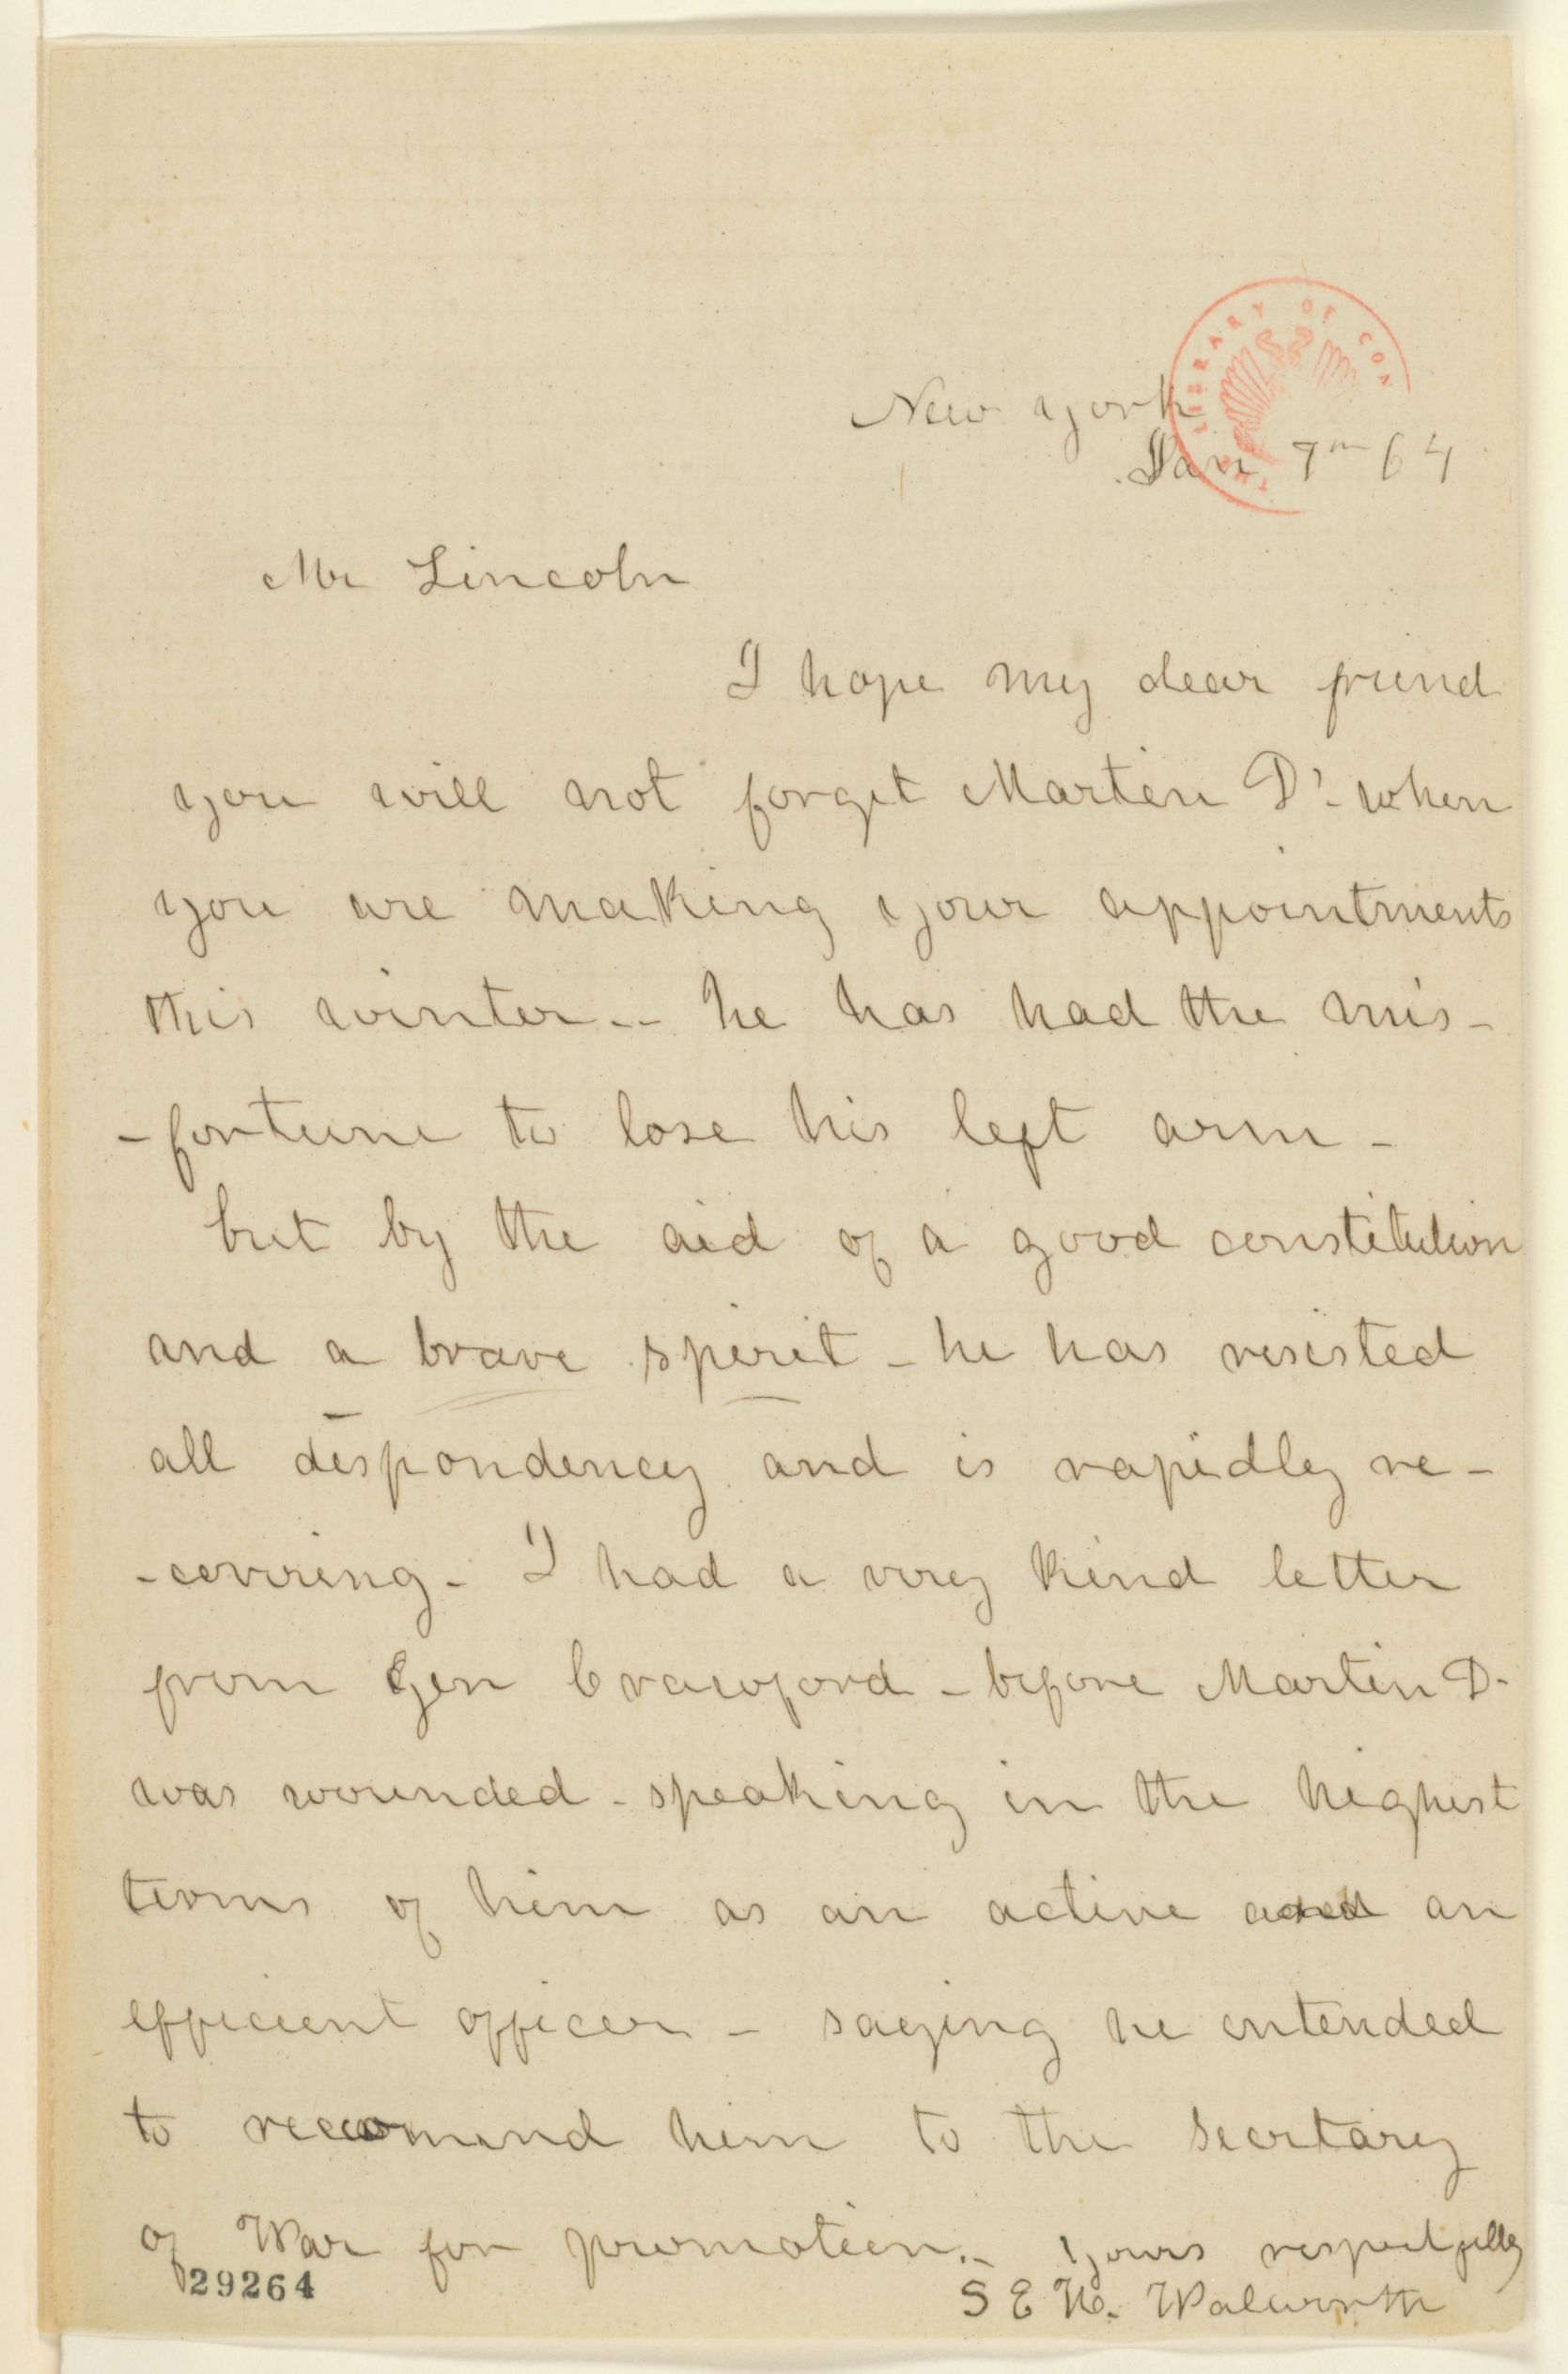 THE LIBRARY OF CON
New York
Jan 7th 64
Mr Lincoln
I hope my dear friend
you will not forget Martin D'- when
you are making your appointments
this winter -- he has had the mis-
-fortune to lose his left arm -
but by the aid of a good constitution
and a brave spirit - he has resisted
all despondency and is rapidly re-
-covering - I had a very kind letter
from Gen Crawford - before Martin D-
was wounded - speaking in the highest
terms of him as an active and an
efficient officer - saying he intended
to reccomend him to the Secrtary
of War for promotion.- Yours respectfully
29264
S E H. Walworth